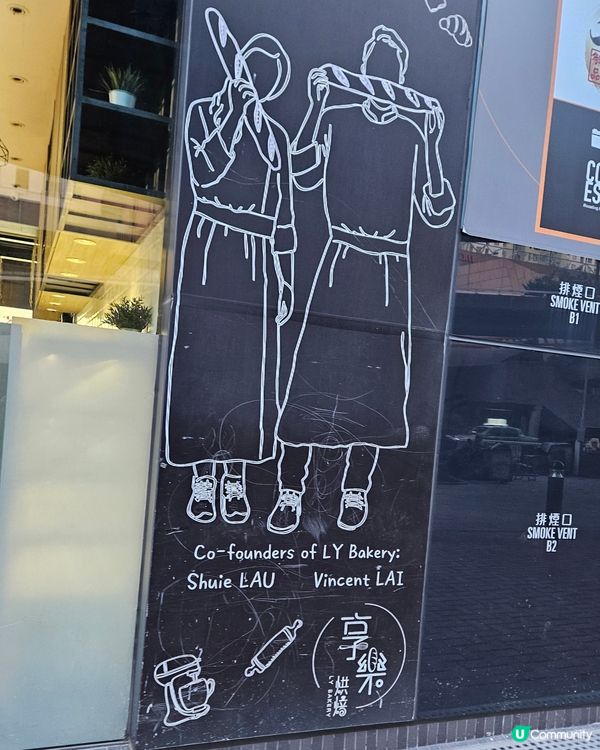 Co-founders of LY Bakery:
Shuie LAU Vincent LAI
享樂
烘焙
LY BAKERY
排煙口
SMOKE VENT
B1
排煙口
SMOKE VENT
B2
U Community